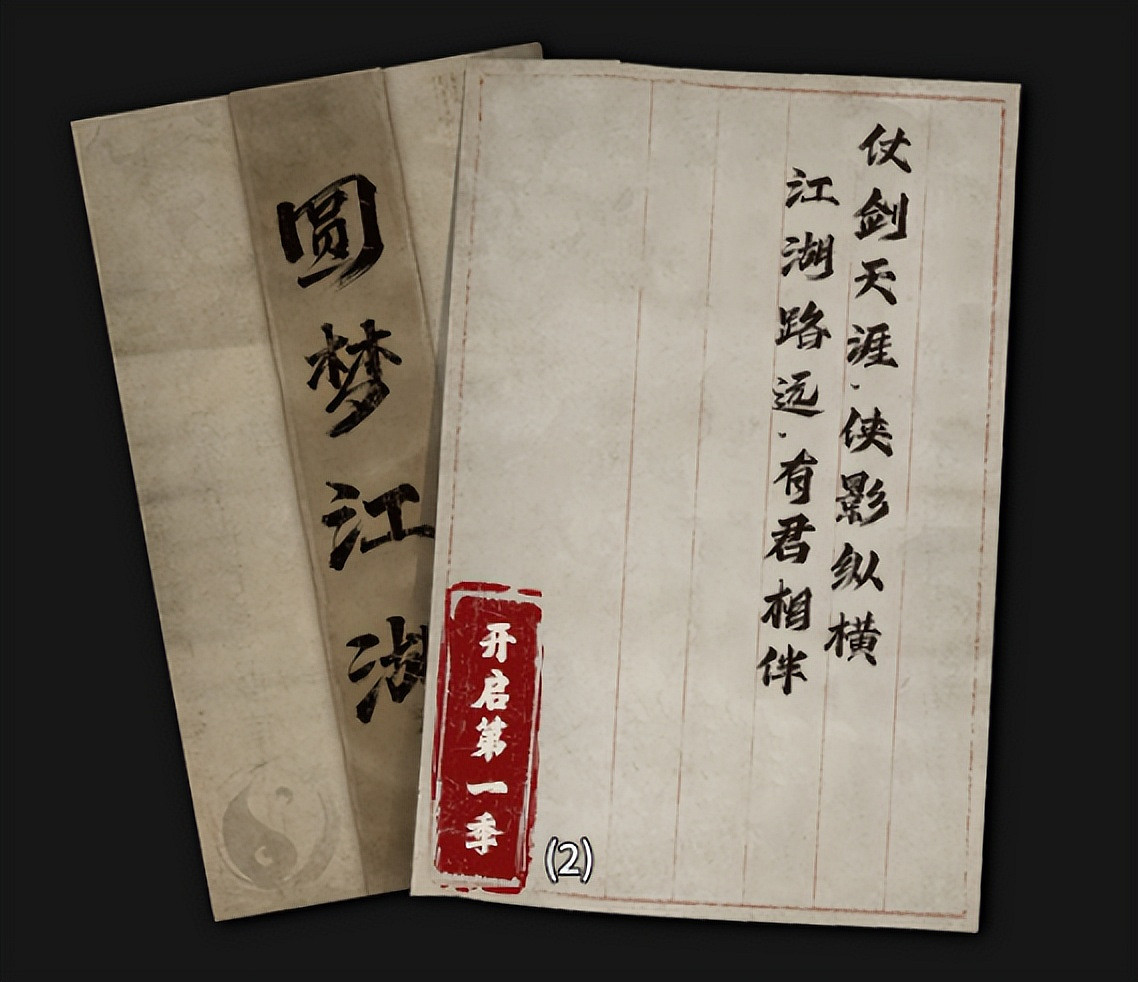 圆梦江湖
仗剑天涯·侠影纵横
江湖路远·有君相伴
开启第一季
(2)